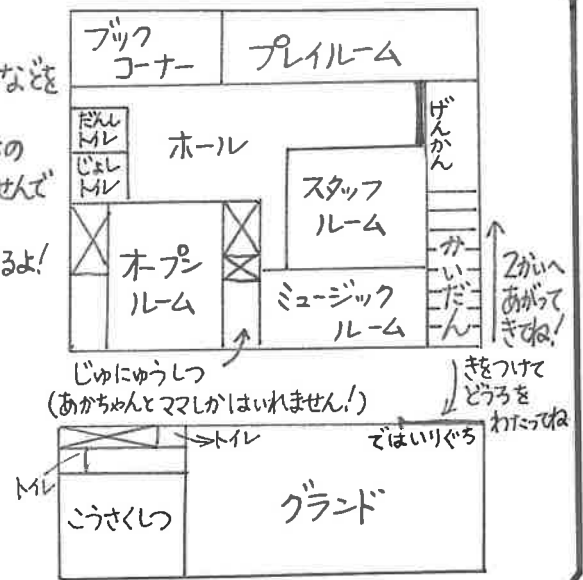 などを
の
せんで
るよ!
ブック
コーナー
プレイルーム
だんし
トイレ
じょし
トイレ
ホール
げんかん
スタッフ
ルーム
オープン
ルーム
ミュージック
ルーム
かいだん
2かいへ
あがって
きてね!
じゅにゅうしつ
(あかちゃんとママしかはいれません!)
きをつけて
どうろを
わたってね
トイレ
ではいりぐち
トイレ
こうさくしつ
グランド